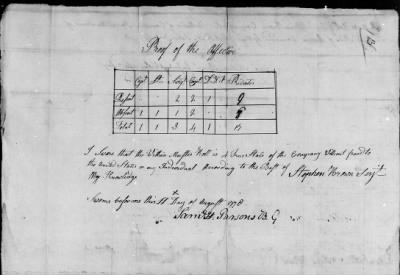 Proof of the Effectives
Capt Lt Serjt Corpl D&F Privates
Present 2 2 1 9
Absent 1 1 1 2
Total 1 1 3 4 1
I Swear that the Within Muster Roll is a True State of the Company Without fraud to
the United States or any Individual According to the Best of
My Knowledge
Stephen Brown Serjt
Sworn before me this 11th Day of August 1778
Saml H. Parsons B G